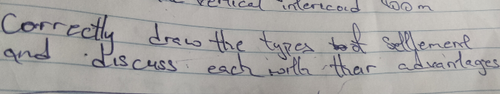 vertical intericoid 400m
Correctly draw the types of settlement
and discuss each with their advantages